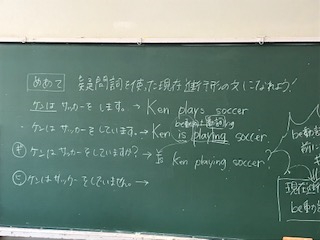 めあて 疑問詞を使った現在進行形の文になれよう!
ケンは サッカーを します。→ Ken plays soccer
be動詞+動詞ing
・ケンは サッカーを しています。→ Ken is playing soccer.
ケンは サッカーをしていますか? → Is Ken playing soccer?
ケンは サッカーを していません。→
be動詞
前に
現在進
be動